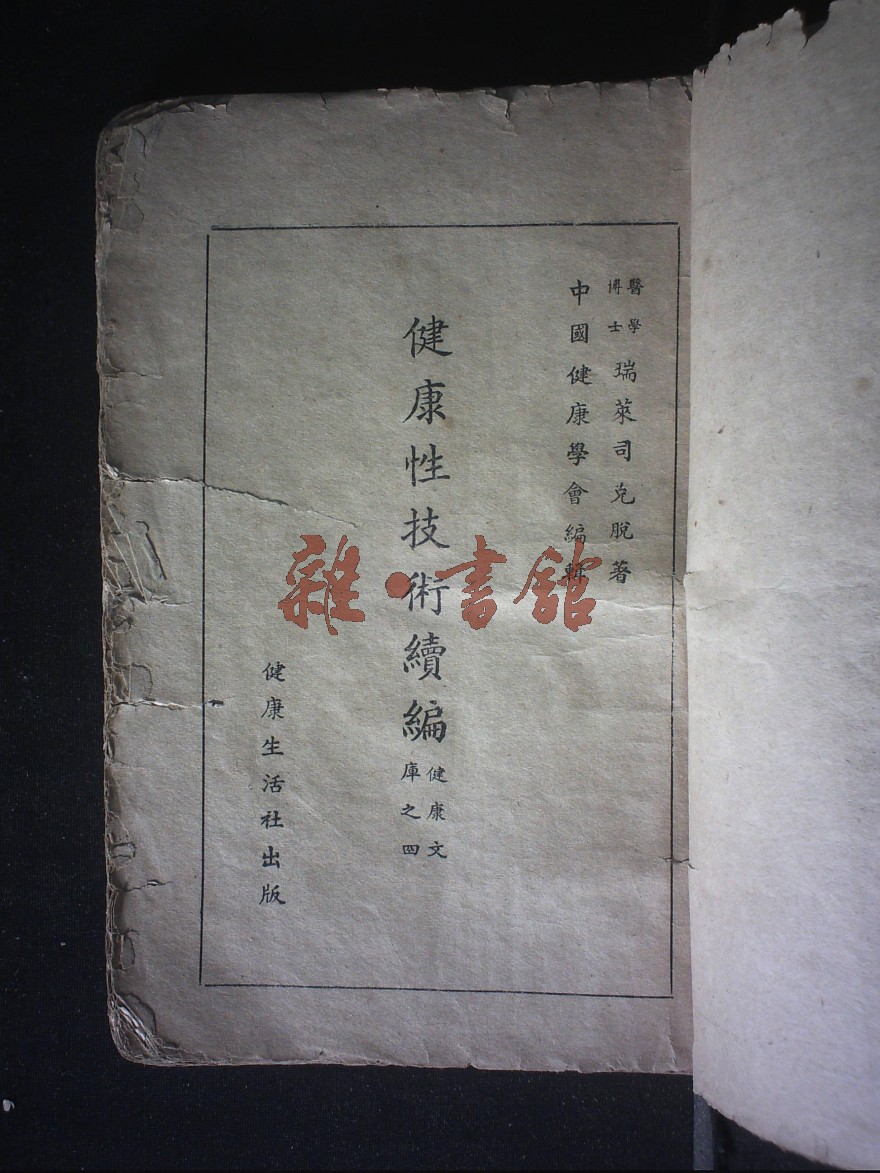 醫學博士瑞萊司克脫著
中國健康學會編輯
健康性技術續編
健康文庫之四
健康生活社出版
雜·書館